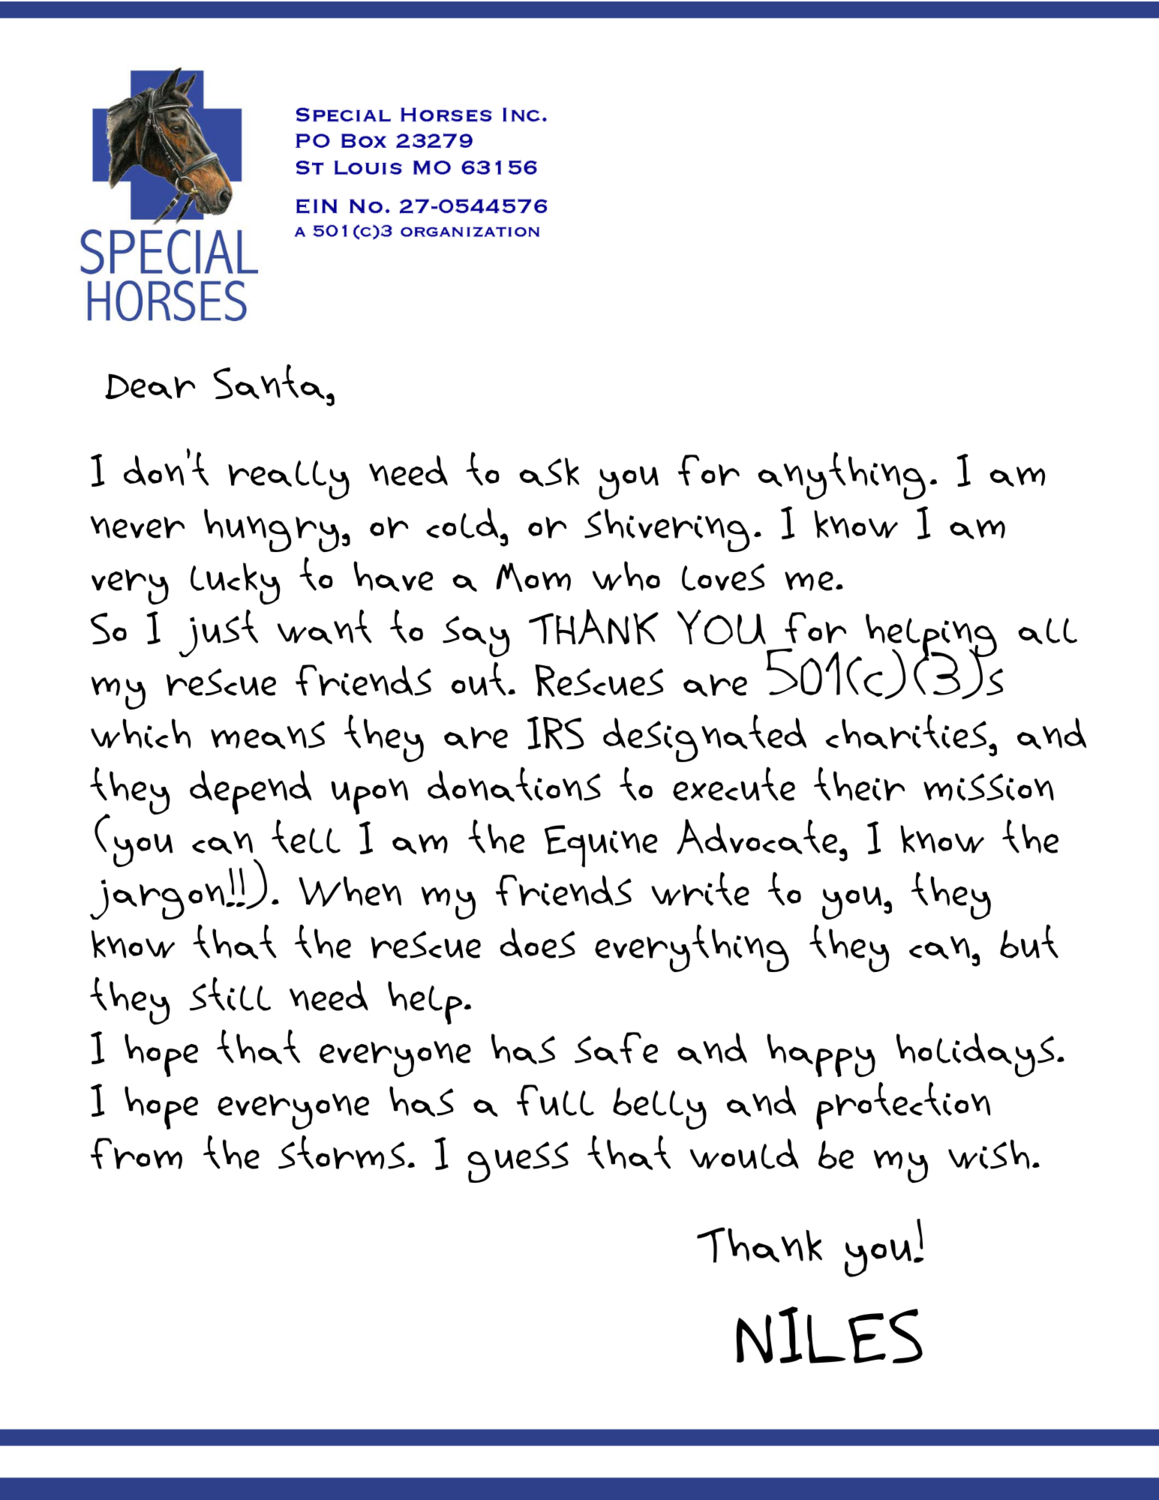 SPECIAL
HORSES
SPECIAL HORSES INC.
PO BOX 23279
ST LOUIS MO 63156
EIN NO. 27-0544576
A 501(C)3 ORGANIZATION
Dear Santa,
I don't really need to ask you for anything. I am
never hungry, or cold, or shivering. I know I am
very lucky to have a Mom who loves me.
So I just want to say THANK YOU for helping all
my rescue friends out. Rescues are 501(c)(3)s
which means they are IRS designated charities, and
they depend upon donations to execute their mission
(you can tell I am the Equine Advocate, I know the
jargon!!). When my friends write to you, they
know that the rescue does everything they can, but
they still need help.
I hope that everyone has safe and happy holidays.
I hope everyone has a full belly and protection
from the storms. I guess that would be my wish.
Thank you!
NILES